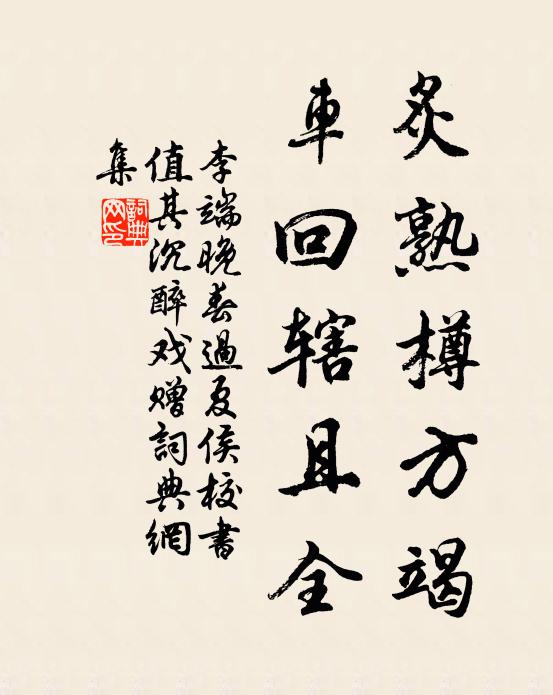 炙熟樽方竭
車回辖且全
李端晚春過夏侯校書
值其沉醉戏贈詞典網
集
詞典
网印